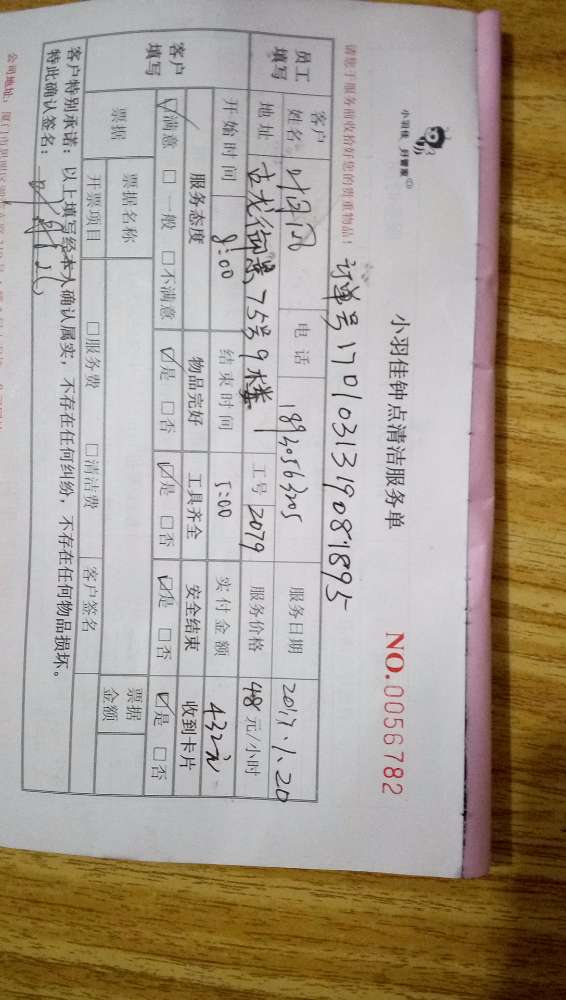 小羽佳 好管家
小羽佳钟点清洁服务单
NO.0056782
请您于服务前收拾好您的贵重物品!
订单号1701031319081895
员工填写 客户姓名 电话 18930563205 服务日期 2017.1.20
地址 古龙御景75号9楼 工号 2079 服务价格 48元/小时
客户填写 开始时间 8:00 结束时间 5:00 实付金额 432元
服务态度 物品完好 工具齐全 安全结束 收到卡片
☑满意 □一般 □不满意 ☑是 □否 ☑是 □否 ☑是 □否 ☑是 □否
票据 票据名称 票据金额
开票项目 □服务费 □清洁费 客户签名
客户特别承诺:以上填写经本人确认属实,不存在任何纠纷,不存在任何物品损坏。
特此确认签名: